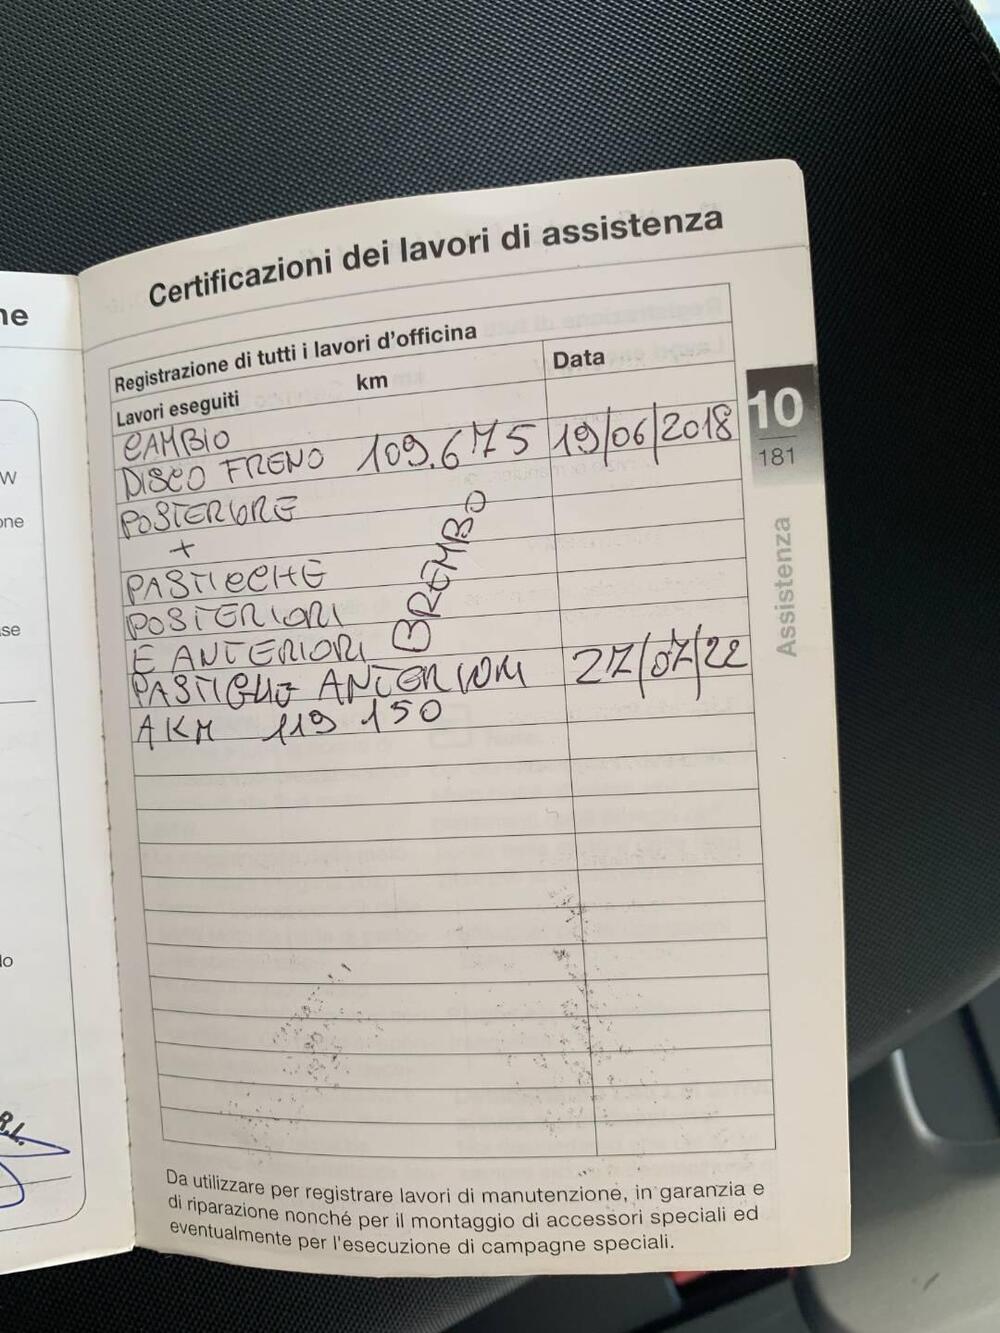 ne
W
one
ase
lo
R.L.
Certificazioni dei lavori di assistenza
Registrazione di tutti i lavori d'officina
Lavori eseguiti km Data
CAMBIO
DISCO FRENO 109.675 19/06/2018
POSTERIORE
+
PASTICCHE
POSTERIORI
E ANTERIORI BREMBO
PASTIGLIE ANTERIORI 27/07/22
A KM 119 150
10
181
Assistenza
Da utilizzare per registrare lavori di manutenzione, in garanzia e
di riparazione nonché per il montaggio di accessori speciali ed
eventualmente per l'esecuzione di campagne speciali.